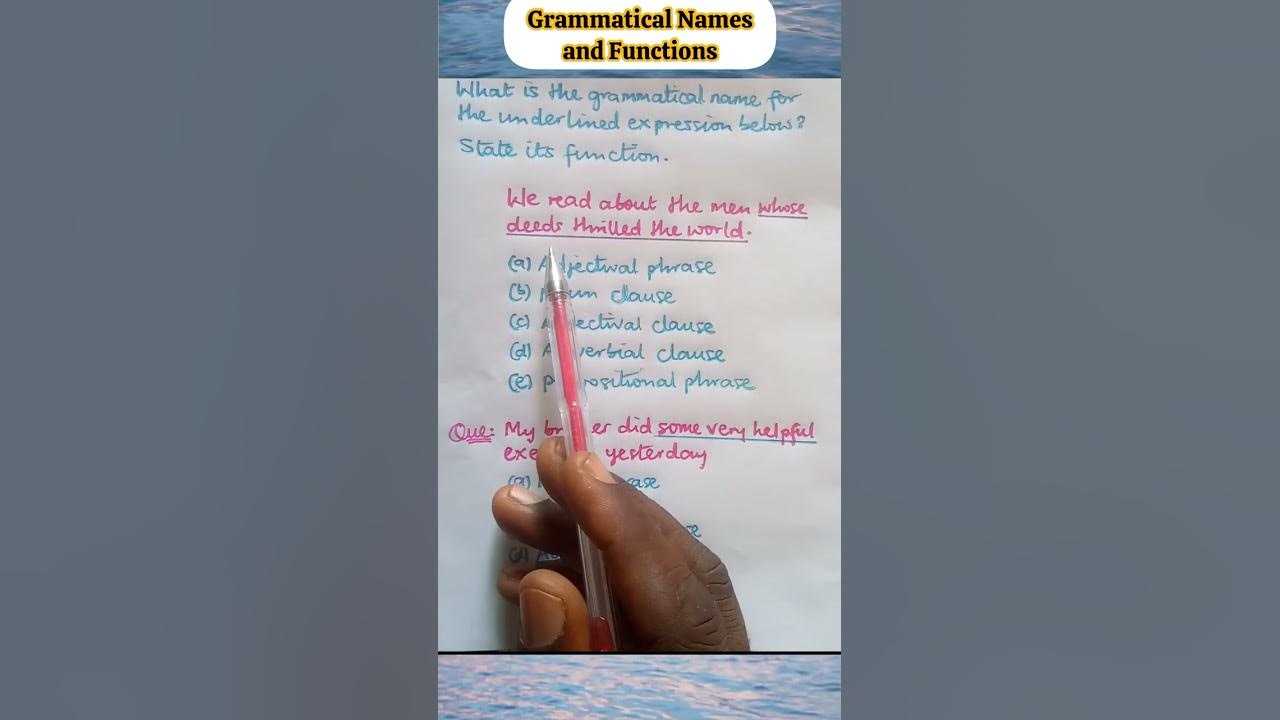 Grammatical Names
and Functions
What is the grammatical name for
the underlined expression below?
State its function.
We read about the men whose
deeds thrilled the world.
(a) Adjectival phrase
(b) Noun clause
(c) Adjectival clause
(d) Adverbial clause
(e) prepositional phrase
Que: My did some very helpful
yesterday
(a)